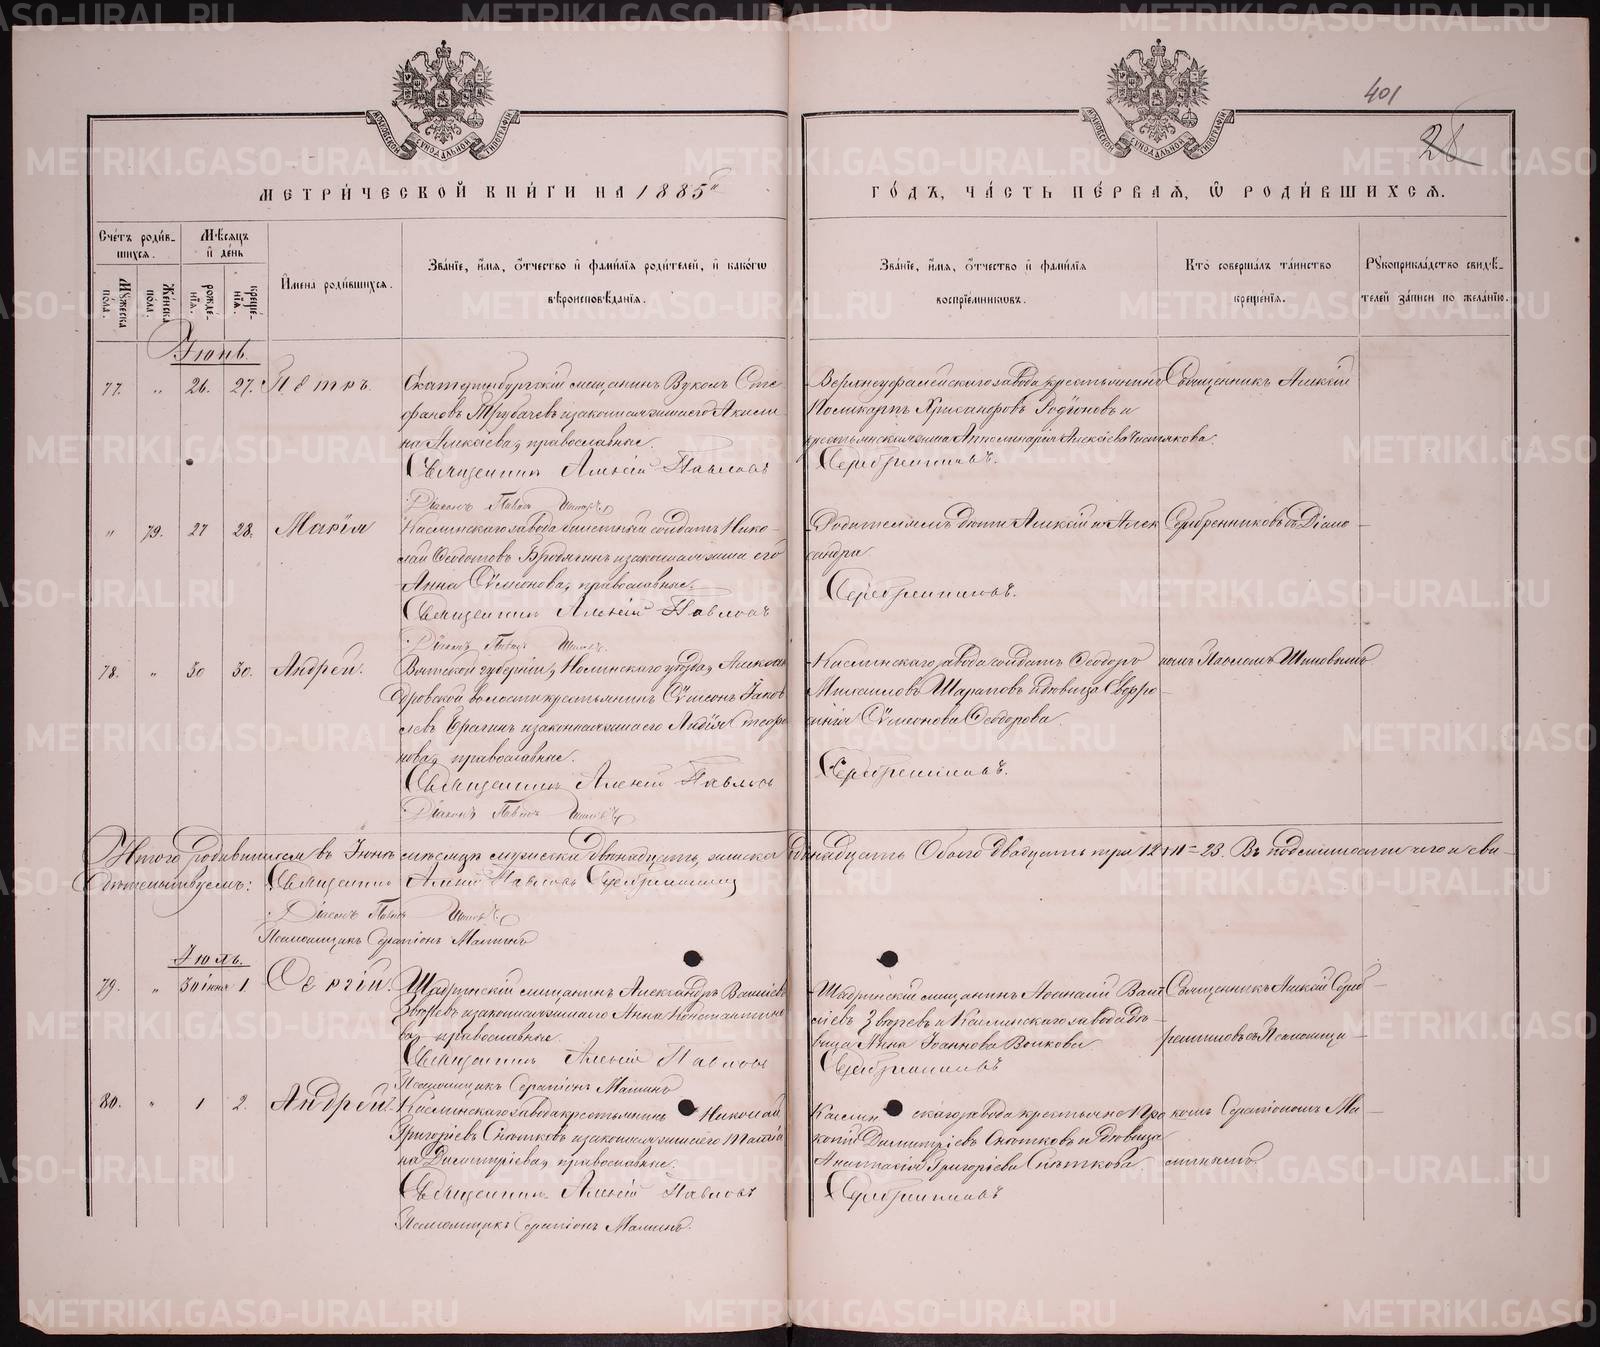 401
28
МЕТРИ́ЧЕСКОЙ КНИ́ГИ НА 1885й
ГО́ДЪ, ЧА́СТЬ ПЕ́РВАЯ, Ѡ РОДИ́ВШИХСЯ.
Сче́тъ роди́в-
шихся.
Мѣ́сяцъ
и де́нь
Мꙋ́жеска
по́ла.
Же́нска
по́ла.
рожде́-
нїя.
креще́-
нїя.
И҆мена̀ роди́вшихся.
Зва́нїе, и҆́мя, ѻ҆́тчество и҆ фами́лїя роди́телей, и҆ како́гѡ
вѣроисповѣ́данїя.
Зва́нїе, и҆́мя, ѻ҆́тчество и҆ фами́лїя
воспрїе́мниковъ.
Кто̀ соверша́лъ та́инство
креще́нїя.
Рꙋкоприкла́дство свидѣ́-
телей за́писи по жела́нїю.
Іюнь.
77. „ 26. 27. Петръ.
Екатеринбургскій мѣщанинъ Вуколъ Сте-
фановъ Трубачевъ и законная жена его Акили-
на Алексіева, православные.
Священникъ Алексій Павловъ
Діаконъ Павелъ
Верхнеуфалейскаго завода крестьянинъ
Поликарпъ Хрисанфовъ Родіоновъ и
крестьянская жена Апполинарія Алексіева Чистякова.
Серебренниковъ.
Священникъ Алексій
„ 79. 27 28. Марія
Каслинскаго завода солдатъ Нико-
лай Ѳедотовъ и законная жена его
Анна Сѵмеонова, православные.
Священникъ Алексій Павловъ
Діаконъ Павелъ
Родителемъ дѣти Алексій и Алек-
сандра.
Серебренниковъ.
Серебренниковъ съ Діако-
78. „ 30 30. Андрей.
Вятской губерніи, Нолинскаго уѣзда, Алексан-
дровской волости крестьянинъ Сѵмеонъ Іаков-
левъ и законная жена его Лидія
православные.
Священникъ Алексій Павловъ
Діаконъ Павелъ
Каслинскаго завода солдатъ Ѳеодоръ
Михаиловъ Шараповъ и дѣвица Евфро-
синія Сѵмеонова Ѳеодорова.
Серебренниковъ.
номъ Павломъ
Итого родившихся въ Іюнѣ мѣсяцѣ мужеска двѣнадцать, женска одинадцать Обоего двадцать три 12+11=23. Въ подлинности чего и сви-
дѣтельствуемъ: Священникъ Алексій Павловъ Серебренниковъ
Діаконъ Павелъ
Псаломщикъ Серапіонъ Малинъ
Іюль.
79. „ 30 іюня 1. Сергій.
Шадринскій мѣщанинъ Александръ Василіевъ
Звѣревъ и законная жена его Анна Константино-
ва, православные.
Священникъ Алексій Павловъ
Псаломщикъ Серапіонъ Малинъ
Шадринскій мѣщанинъ Аѳанасій Васи-
ліевъ Звѣревъ и Каслинскаго завода дѣ-
вица Анна Іоаннова Волкова
Серебренниковъ
Священникъ Алексій Сереб-
ренниковъ съ Псаломщи-
80. „ 1 2. Андрей.
Каслинскаго завода крестьянинъ Николай
Григоріевъ Снѣтковъ и законная жена его Татіа-
на Димитріева, православные.
Священникъ Алексій Павловъ
Псаломщикъ Серапіонъ Малинъ.
Каслинскаго завода крестьяне Про-
копій Димитріевъ Снѣтковъ и дѣвица
Анастасія Григоріева Снѣткова.
Серебренниковъ
комъ Серапіономъ Ма-
линымъ.